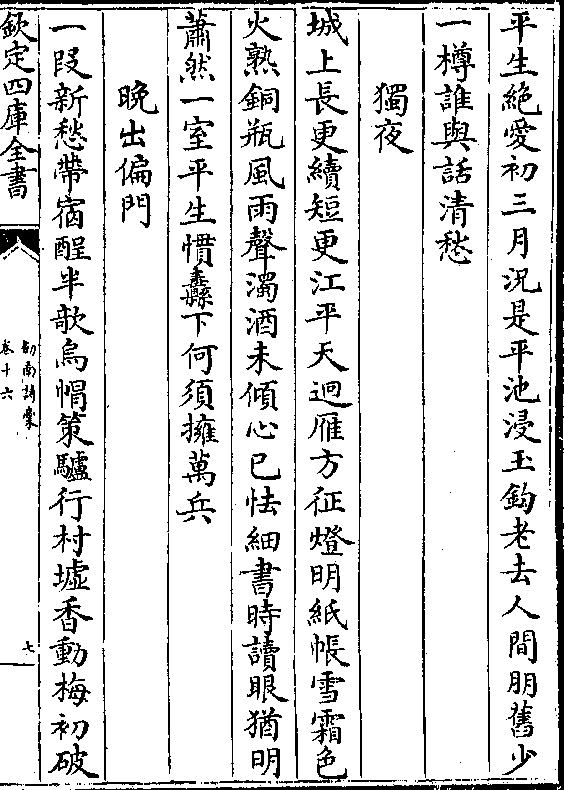 平生絶愛初三月況是平池浸玉鈎老去人間朋舊少
一樽誰與話清愁
獨夜
城上長更續短更江平天迥雁方征燈明紙帳雪霜色
火熟銅瓶風雨聲濁酒未傾心已怯細書時讀眼猶明
蕭然一室平生慣纛下何須擁萬兵
晩出偏門
一段新愁帶宿酲半欹烏帽策驢行村墟香動梅初破
欽定四庫全書
劍南詩槀
卷十六
七